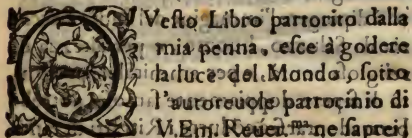 QVesto Libro partorito dalla
mia penna, esce à godere
la luce del Mondo sotto
l'autoreuole patrocinio di
V. Em. Reuer.ma ne saprei